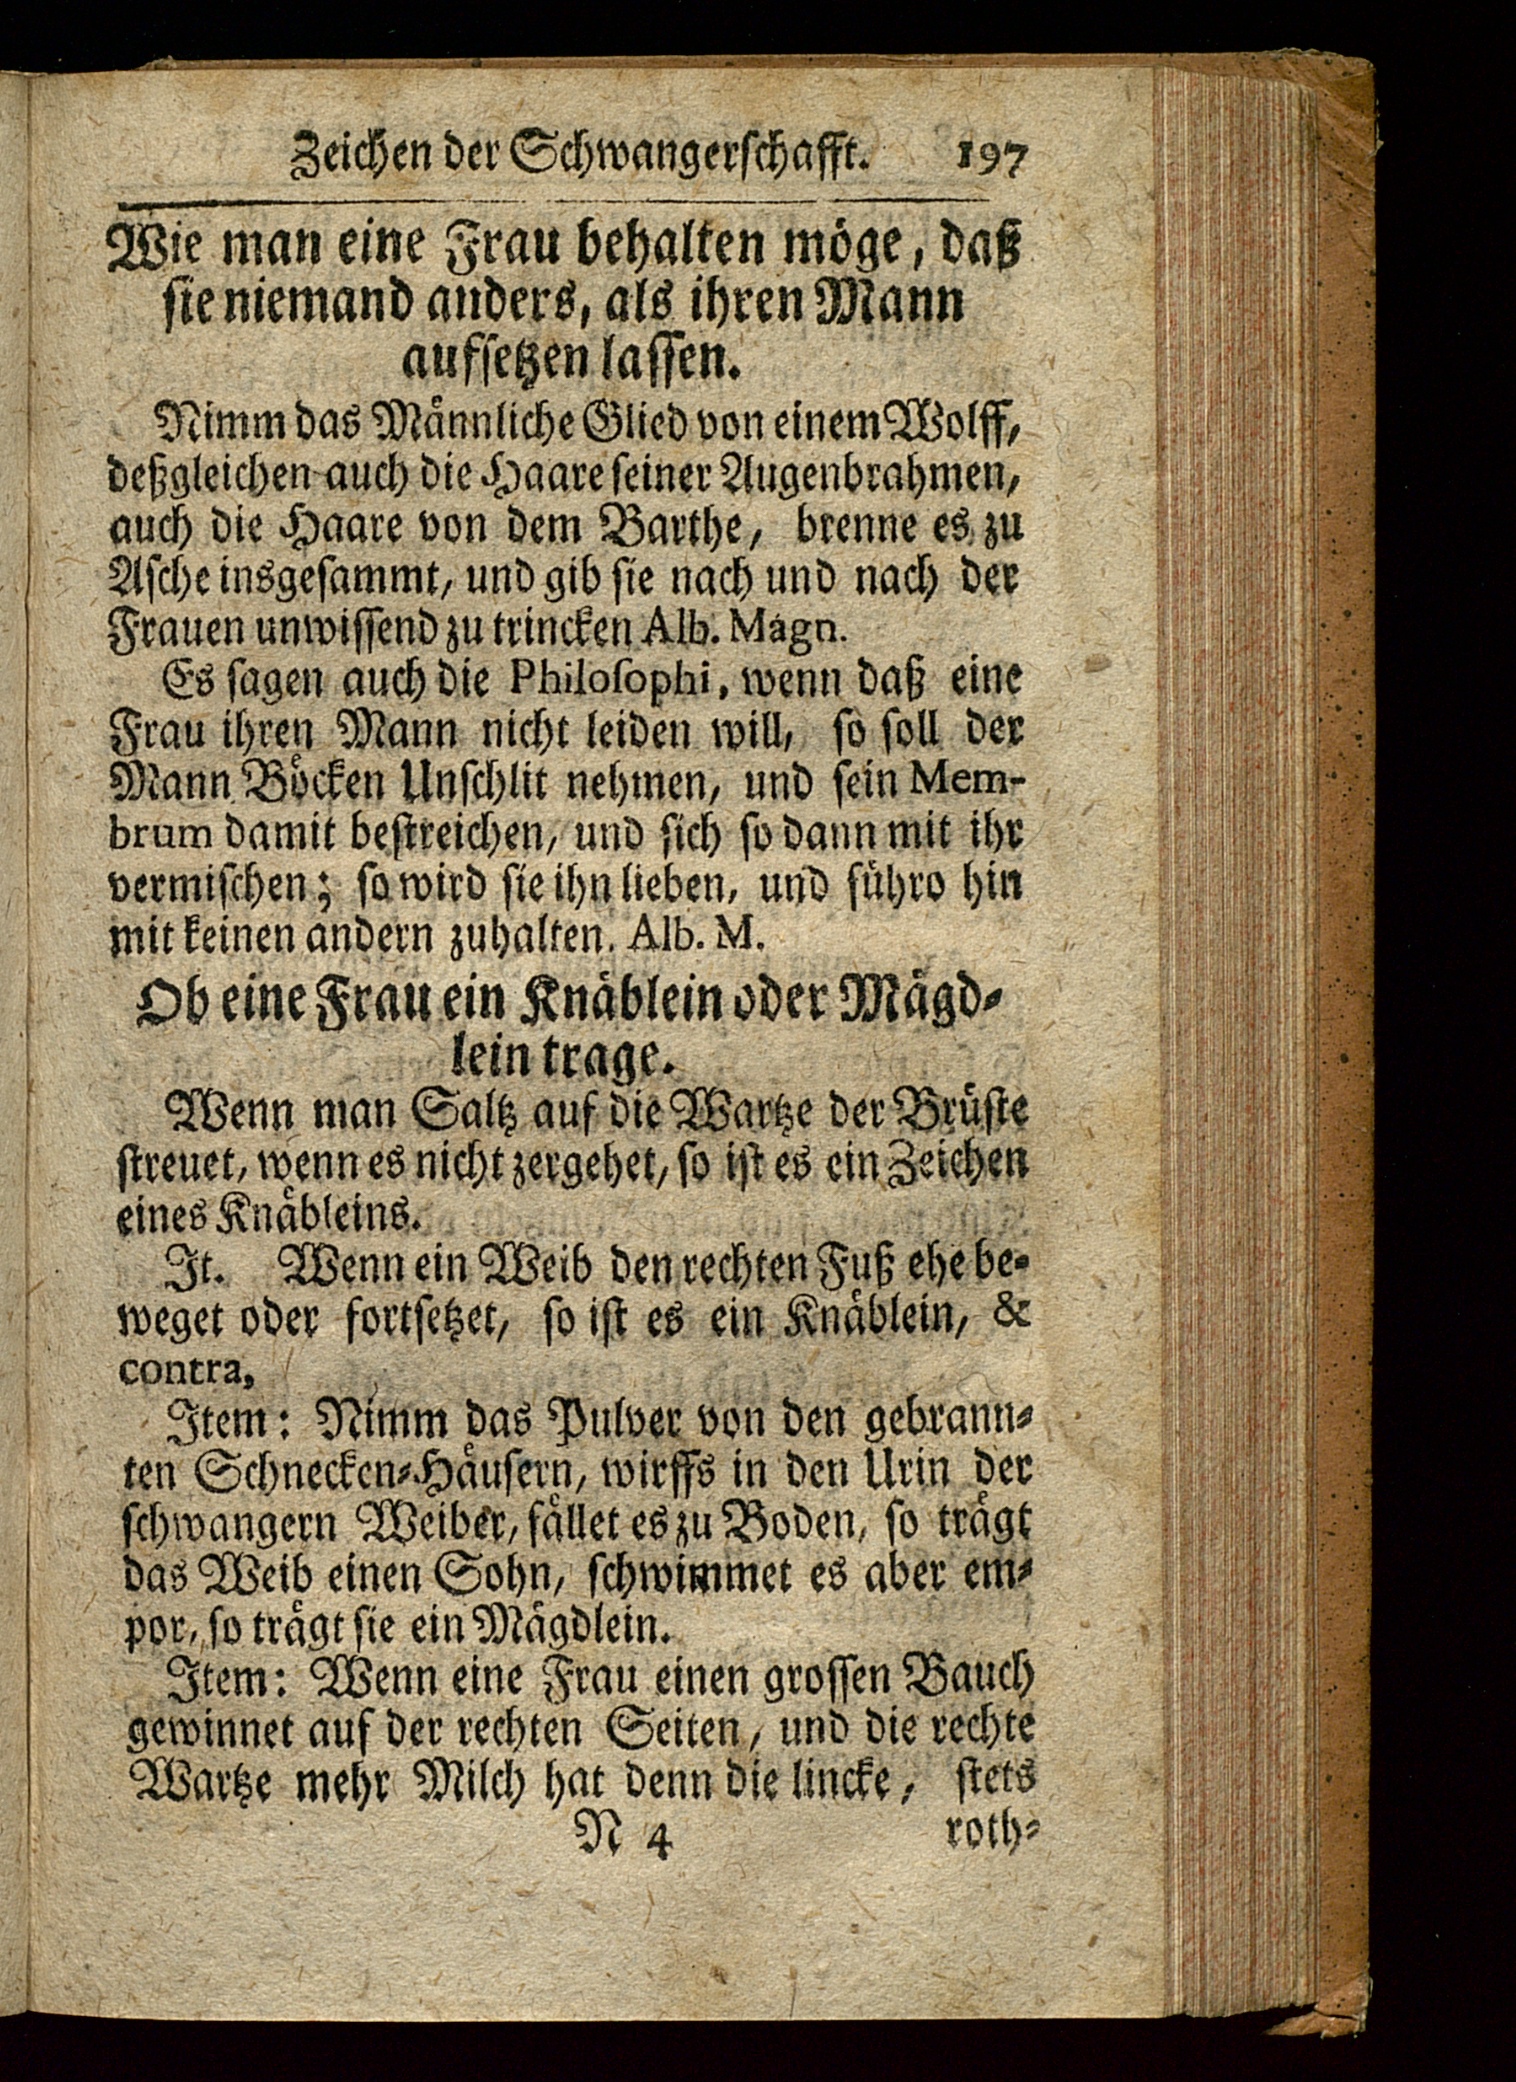 Zeichen der Schwangerschafft. 197
Wie man eine Frau behalten möge, daß
sie niemand anders, als ihren Mann
aufsetzen lassen.
Nimm das Männliche Glied von einem Wolff,
deßgleichen auch die Haare seiner Augenbrahmen,
auch die Haare von dem Barthe, brenne es zu
Asche insgesammt, und gib sie nach und nach der
Frauen unwissend zu trincken Alb. Magn.
Es sagen auch die Philosophi, wenn daß eine
Frau ihren Mann nicht leiden will, so soll der
Mann Böcken Unschlit nehmen, und sein Mem-
brum damit bestreichen, und sich so dann mit ihr
vermischen; so wird sie ihn lieben, und führo hin
mit keinen andern zuhalten. Alb. M.
Ob eine Frau ein Knäblein oder Mägd-
lein trage.
Wenn man Saltz auf die Wartze der Brüste
streuet, wenn es nicht zergehet, so ist es ein Zeichen
eines Knäbleins.
It. Wenn ein Weib den rechten Fuß ehe be-
weget oder fortsetzet, so ist es ein Knäblein, &
contra,
Item: Nimm das Pulver von den gebrann-
ten Schnecken-Häusern, wirffs in den Urin der
schwangern Weiber, fället es zu Boden, so trägt
das Weib einen Sohn, schwimmet es aber em-
por, so trägt sie ein Mägdlein.
Item: Wenn eine Frau einen grossen Bauch
gewinnet auf der rechten Seiten, und die rechte
Wartze mehr Milch hat denn die lincke, stets
N 4 roth-